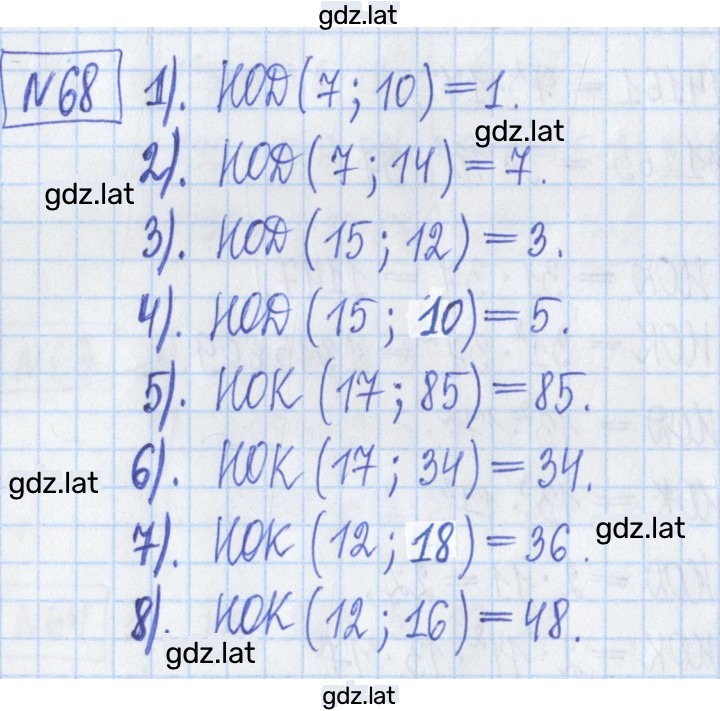 gdz.lat
№68 1). НОД(7; 10) = 1.
gdz.lat
2). НОД(7; 14) = 7.
gdz.lat
3). НОД(15; 12) = 3.
4). НОД(15; 10) = 5.
5). НОК(17; 85) = 85.
6). НОК(17; 34) = 34.
gdz.lat
7). НОК(12; 18) = 36.
gdz.lat
8). НОК(12; 16) = 48.
gdz.lat
gdz.lat